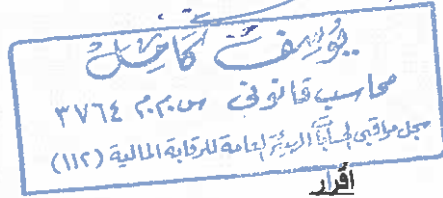 يوسف كامل
محاسب قانونى س.م.م ٣٧٦٤
سجل مراقبى الحسابات الهيئة العامة للرقابة المالية (١١٢)
أقرار